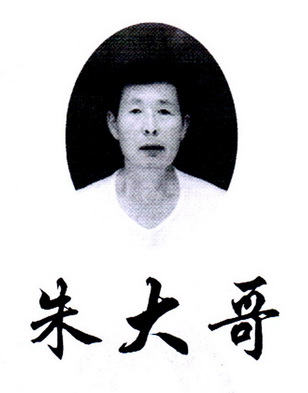 朱大哥